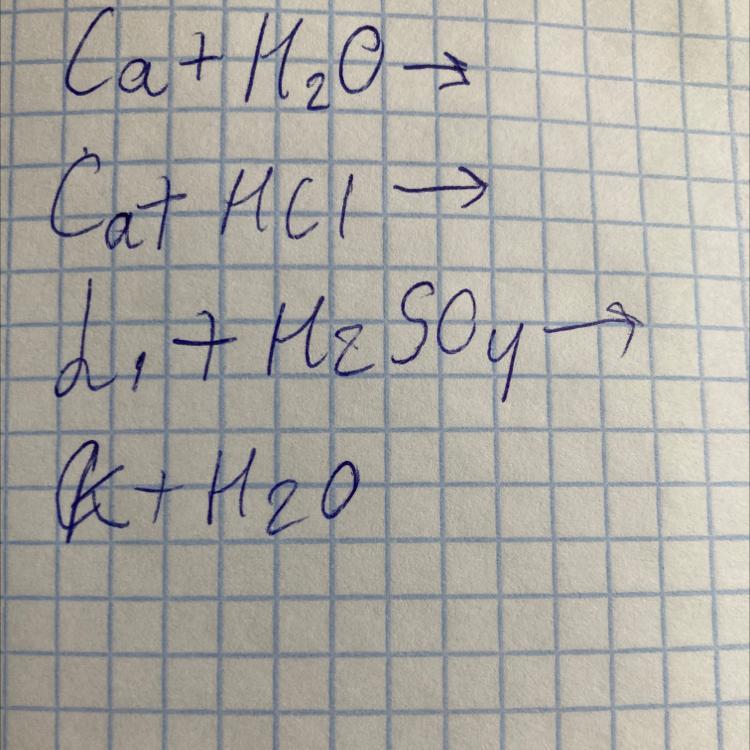 Ca + H₂O →
Ca + HCl →
Li + H₂SO₄ →
K + H₂O